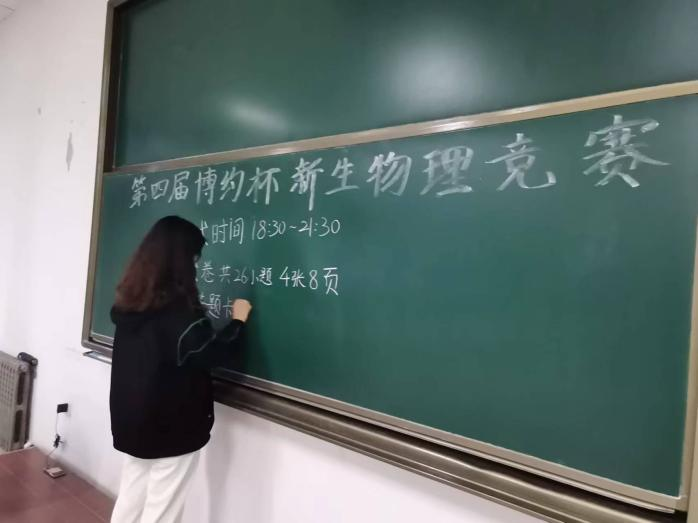 第四届博约杯新生物理竞赛
时间 18:30~21:30
卷 共26小题 4张8页
题卡